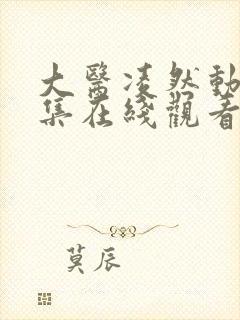 大醫凌然動
集在綫觀看
莫辰